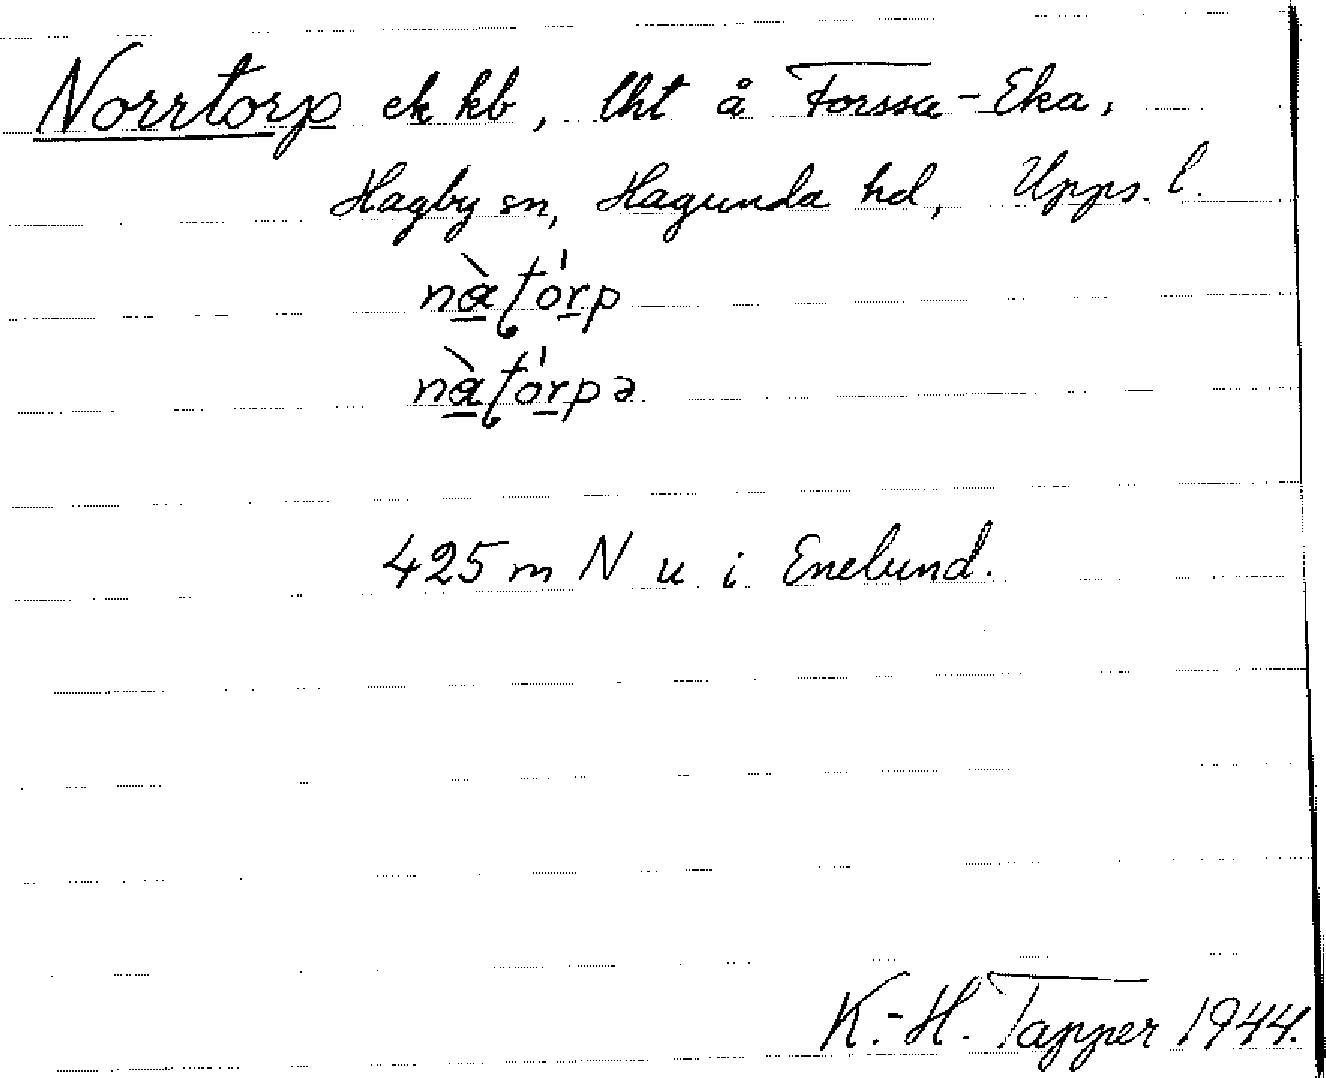 Norrtorp ek kb, lht å Forssa-Eka,
Hagby sn, Hagunda hd, Upps. l.
nàʈórp
nàʈórpə
425 m N u i Enelund.
K.-H. Tapper 1944.